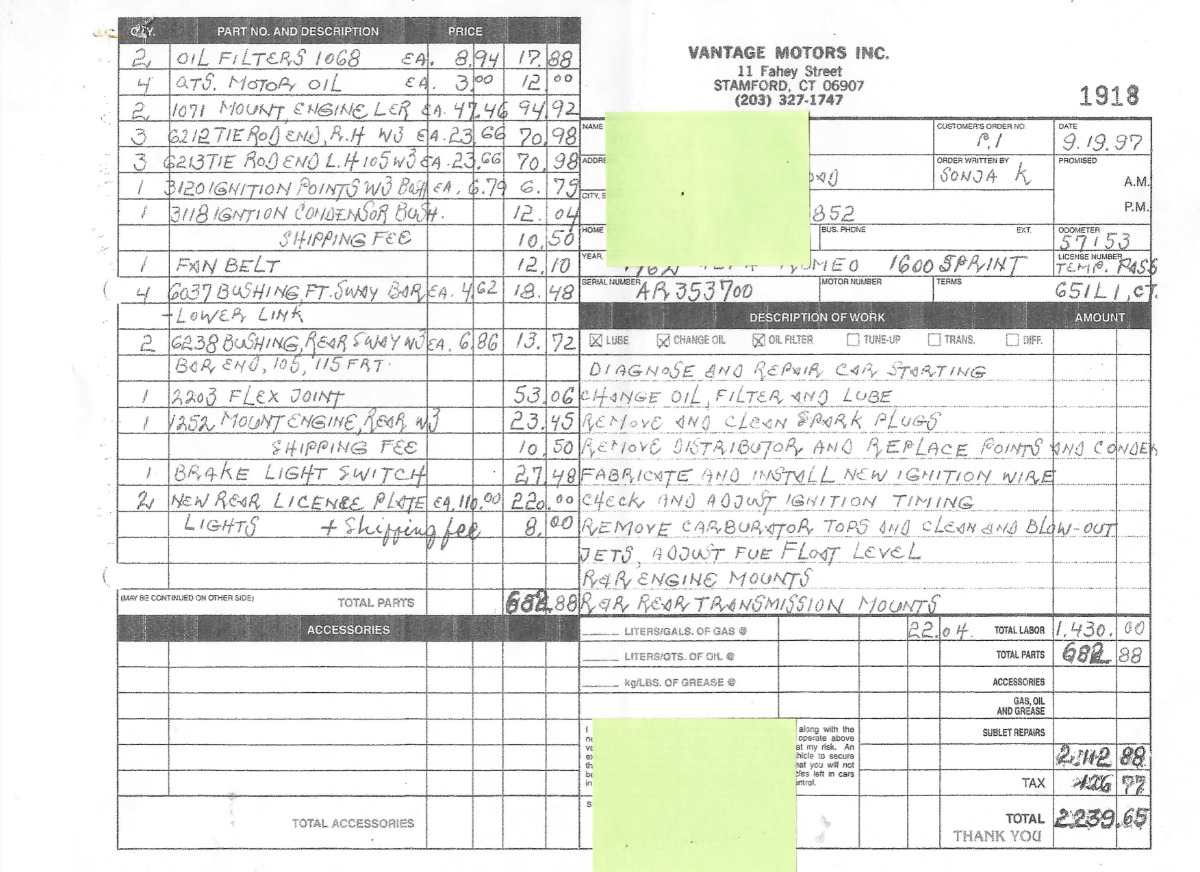 QTY. PART NO. AND DESCRIPTION PRICE
2 OIL FILTERS 1068 EA. 8.94 17.88
4 QTS. MOTOR OIL EA. 3.00 12.00
2 1071 MOUNT, ENGINE LER EA. 47.46 94.92
3 6212 TIE ROD END, R.H W3 EA. 23.66 70.98
3 6213 TIE ROD END L.H 105 W3 EA. 23.66 70.98
1 3120 IGNITION POINTS W3 BOSH EA. 6.79 6.79
1 3118 IGNTION CONDENSOR BUSH. 12.04
SHIPPING FEE 10.50
1 FAN BELT 12.10
4 6037 BUSHING, FT. SWAY BAR EA. 4.62 18.48
+LOWER LINK
2 6238 BUSHING, REAR SWAY W3 EA. 6.86 13.72
BAR END, 105, 115 FRT.
1 2203 FLEX JOINT 53.06
1 1252 MOUNT ENGINE, REAR W3 23.45
SHIPPING FEE 10.50
1 BRAKE LIGHT SWITCH 27.48
2 NEW REAR LICENCE PLATE EA. 110.00 220.00
LIGHTS + Shipping fee 8.00
(MAY BE CONTINUED ON OTHER SIDE) TOTAL PARTS 682.88
ACCESSORIES
TOTAL ACCESSORIES
VANTAGE MOTORS INC.
11 Fahey Street
STAMFORD, CT 06907
(203) 327-1747
1918
NAME CUSTOMER'S ORDER NO. P.1 DATE 9.19.97
ADDRE ORDER WRITTEN BY SONJA K PROMISED
A.M.
P.M.
CITY, S 852
HOME BUS. PHONE EXT. ODOMETER 57153
YEAR, ROMEO 1600 SPRINT LICENSE NUMBER TEMP. PASS
SERIAL NUMBER AR353700 MOTOR NUMBER TERMS 651L1, CT.
DESCRIPTION OF WORK AMOUNT
LUBE CHANGE OIL OIL FILTER TUNE-UP TRANS. DIFF.
DIAGNOSE AND REPAIR CAR STARTING
CHANGE OIL, FILTER AND LUBE
REMOVE AND CLEAN SPARK PLUGS
REMOVE DISTRIBUTOR AND REPLACE POINTS AND CONDEN
FABRICATE AND INSTALL NEW IGNITION WIRE
CHECK AND ADJUST IGNITION TIMING
REMOVE CARBURATOR TOPS AND CLEAN AND BLOW-OUT
JETS, ADJUST FUE FLOAT LEVEL
R&R ENGINE MOUNTS
R&R REAR TRANSMISSION MOUNTS
LITERS/GALS. OF GAS @ 22.0 H. TOTAL LABOR 1,430.00
LITERS/QTS. OF OIL @ TOTAL PARTS 682.88
kg/LBS. OF GREASE @ ACCESSORIES
GAS, OIL
AND GREASE
SUBLET REPAIRS
I along with the
operate above
at my risk. An
ex hicle to secure
th hat you will not
be left in cars
in ntrol.
2,112.88
TAX 126.77
TOTAL 2239.65
THANK YOU